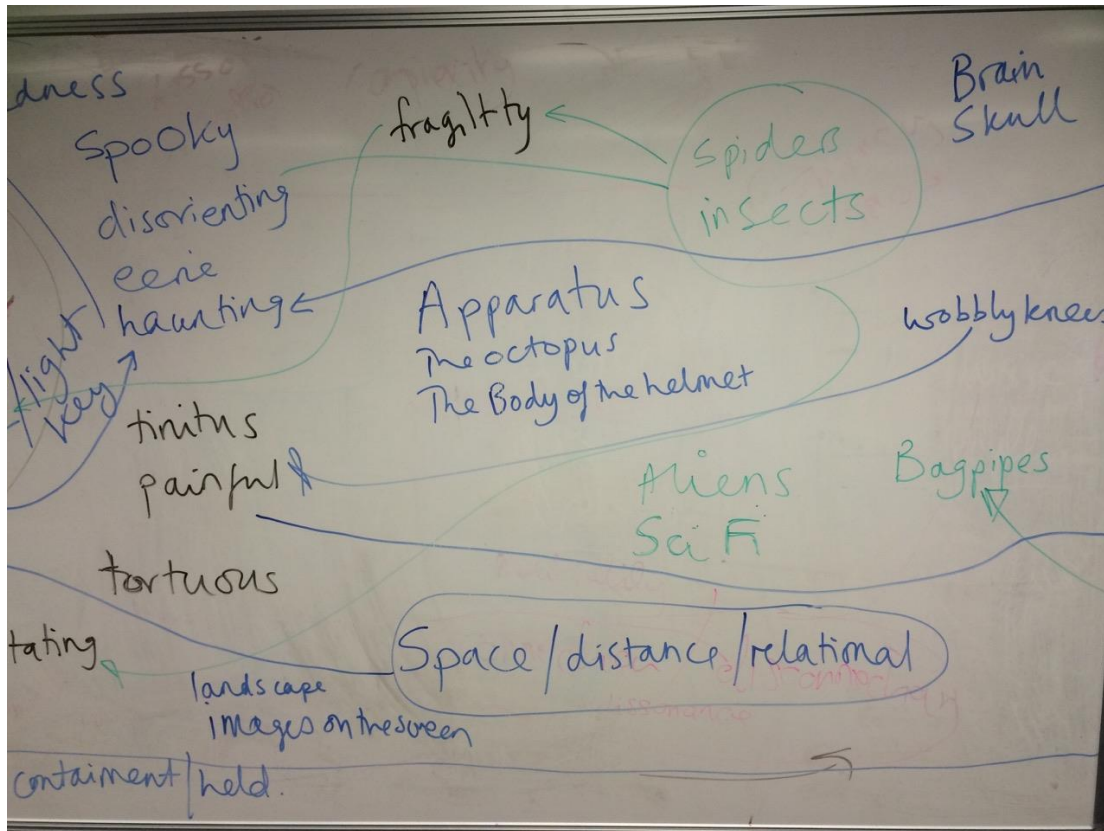 dness
Spooky
disorienting
eerie
haunting
light
key
fragiltty
spiders
insects
Brain
Skull
Apparatus
The octopus
The Body of the helmet
wobbly knees
tinitus
painful
Aliens
Sci Fi
Bagpipes
tortuous
tating
Space/distance/relational
landscape
images on the screen
contaiment/held.